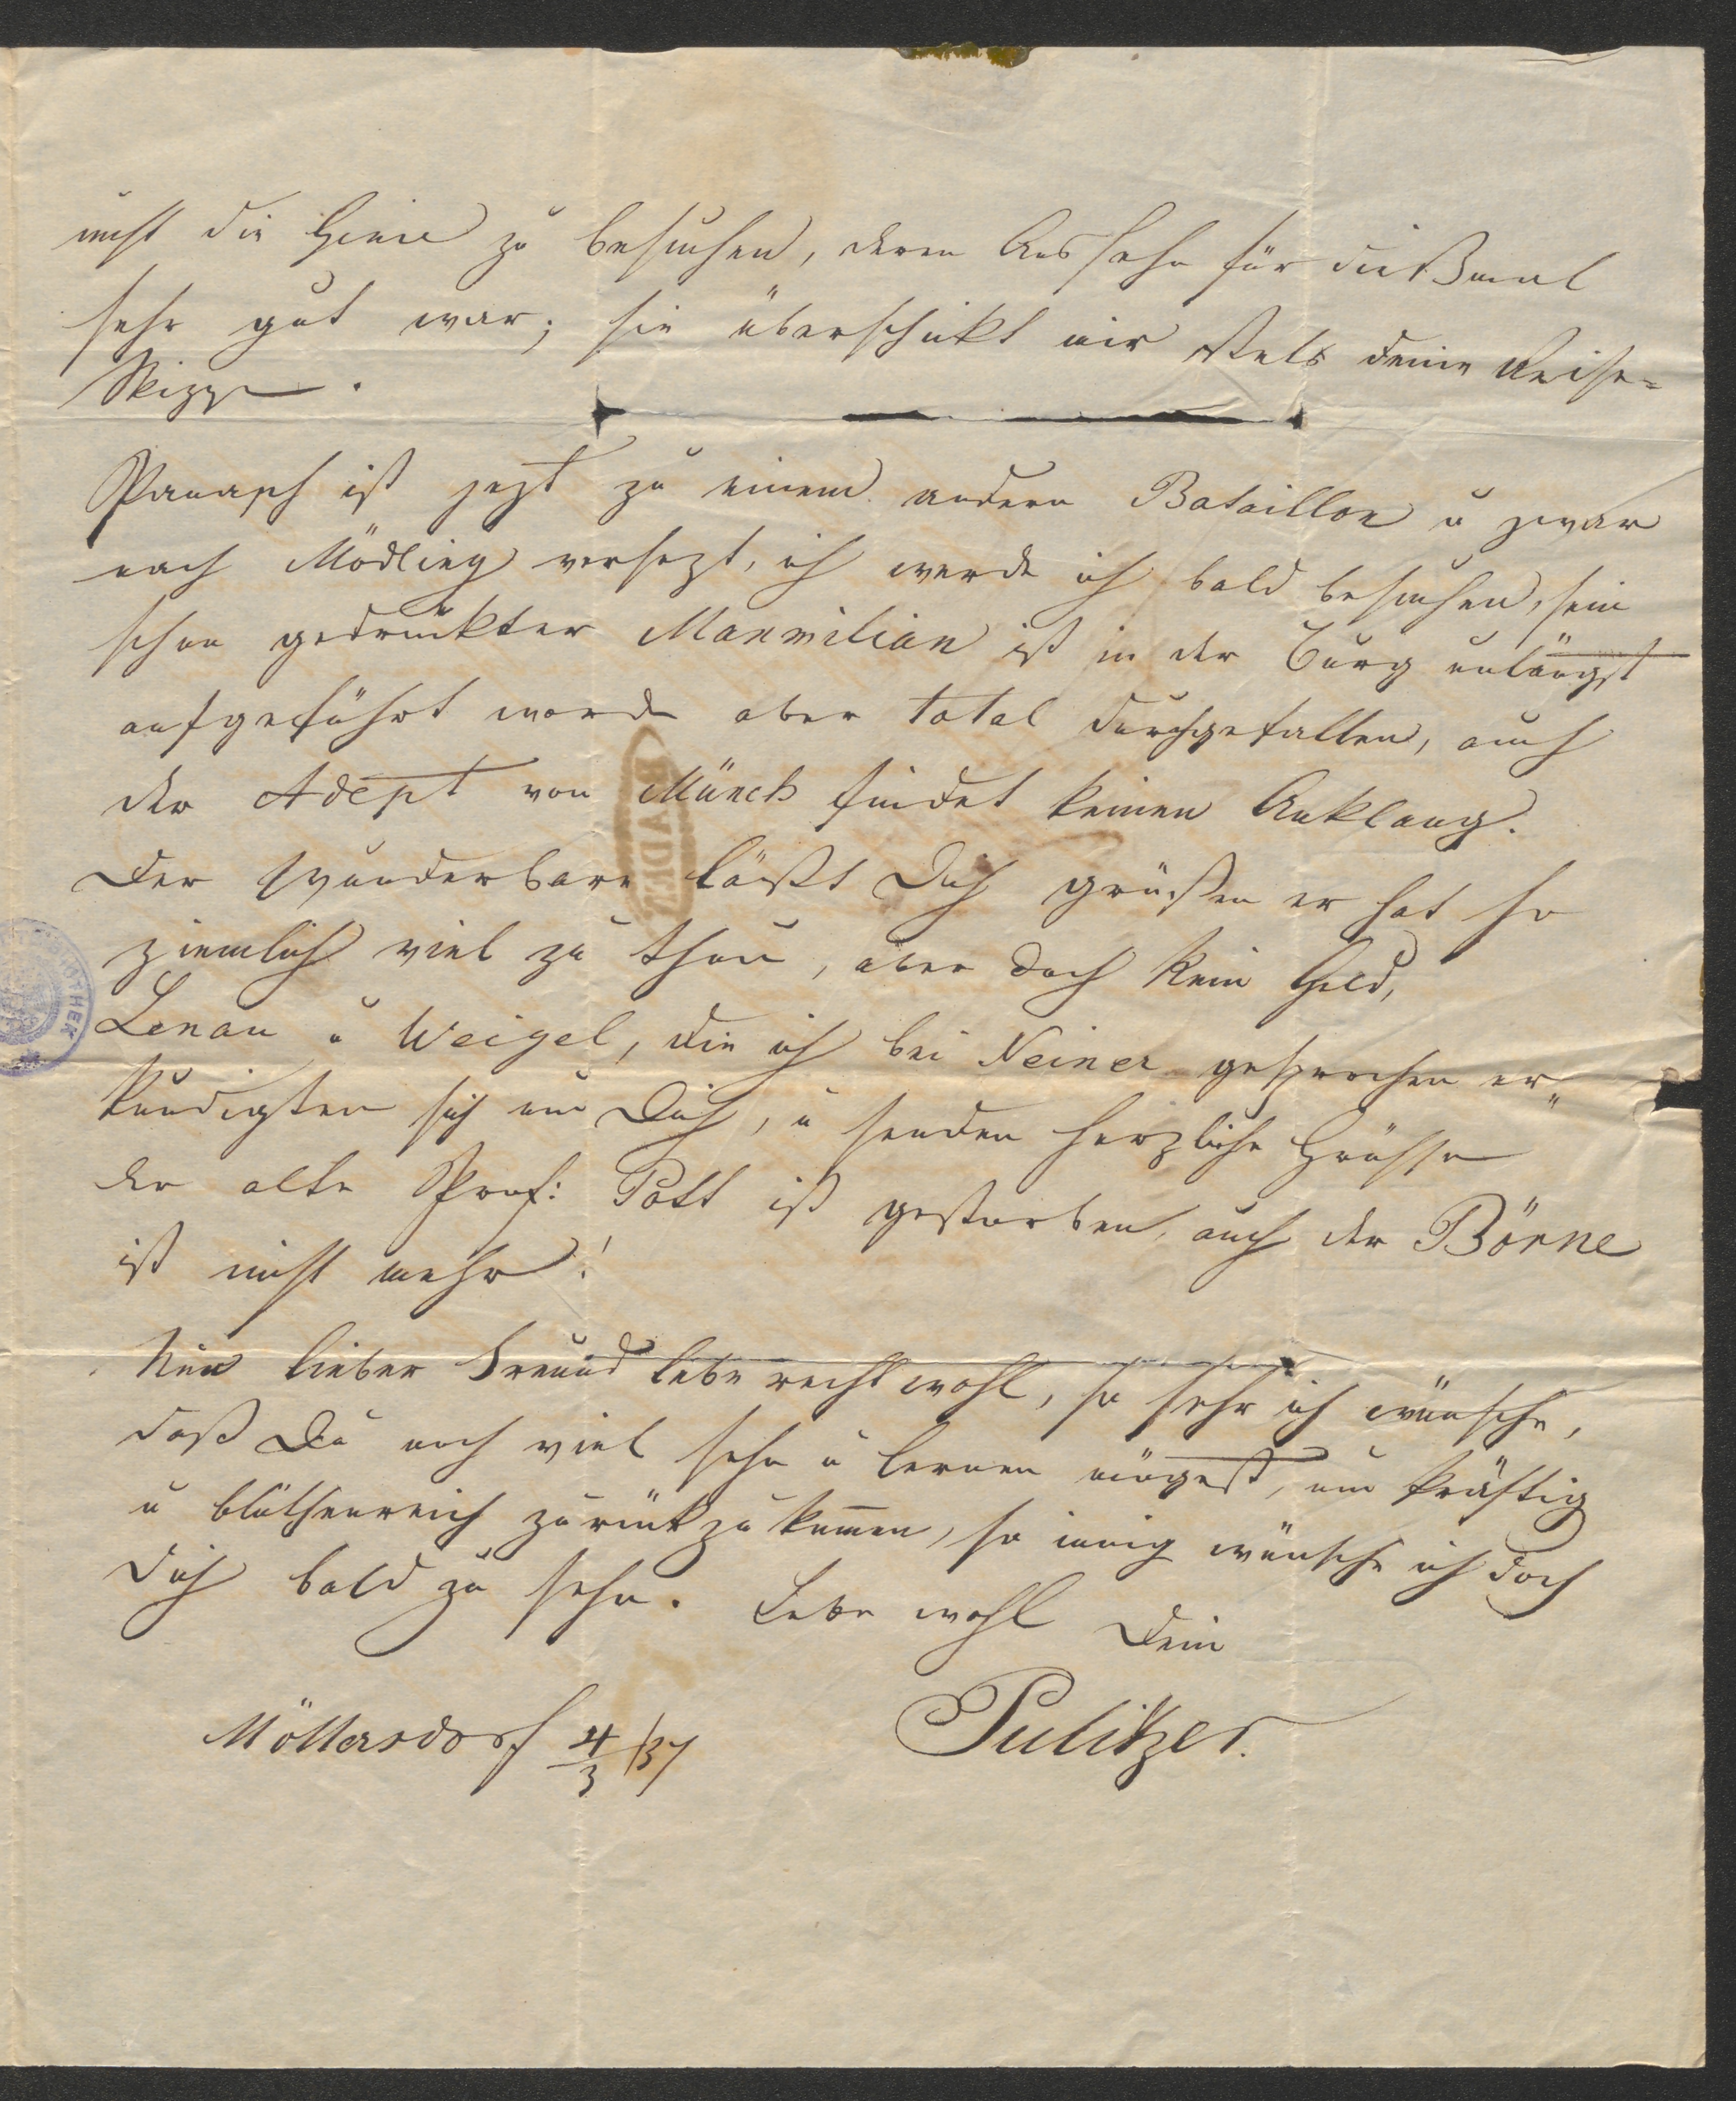 nicht die Henie zu besuchen, deren Aussehn für dießmal
sehr gut war; sie überschickt mir stets deine Reise=
Skizze.
ist jezt zu einem andern Bataillon u zwar
nach Mödling versezt, ich werde ih bald besuchen, sein
schon gedruckter Maxmilian ist in der Burg unlängst
aufgeführt worde aber total durchgefallen, auch
der Adept von Münch findet keinen Anklang.
Der Wunderbare läßt Dich grüßen er hat so
ziemlich viel zu thun, aber doch kein Geld,
Lenau u Weigel, die ich bei Neiner gesprochen er„
kundigten sich um Dich, u senden herzliche Grüsse
der alte Prof: Pott ist gestorben, auch der Börne
ist nicht mehr!
Nun lieber Freund lebe recht wohl, so sehr ich wünsche,
daß Du noch viel sehn u lernen mögest, um kräftig
u blüthenreich zurückzukommen, so innig wünsche ich doch
dich bald zu sehn. Lebe wohl Dein
Pulitzer.
Möllersdorf 4/3 /37
BAADEN
OTHEK